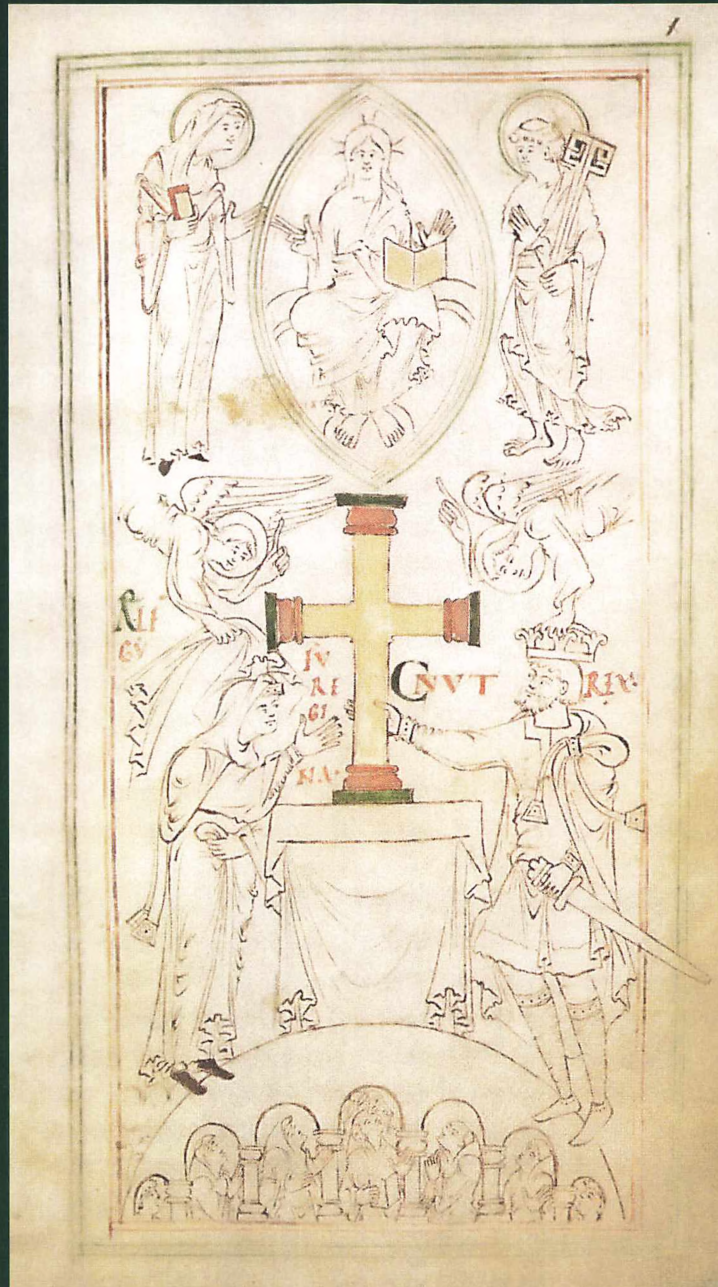 1
ÆLF
GV
FV
RE
GI
NA·
CNVT REX·